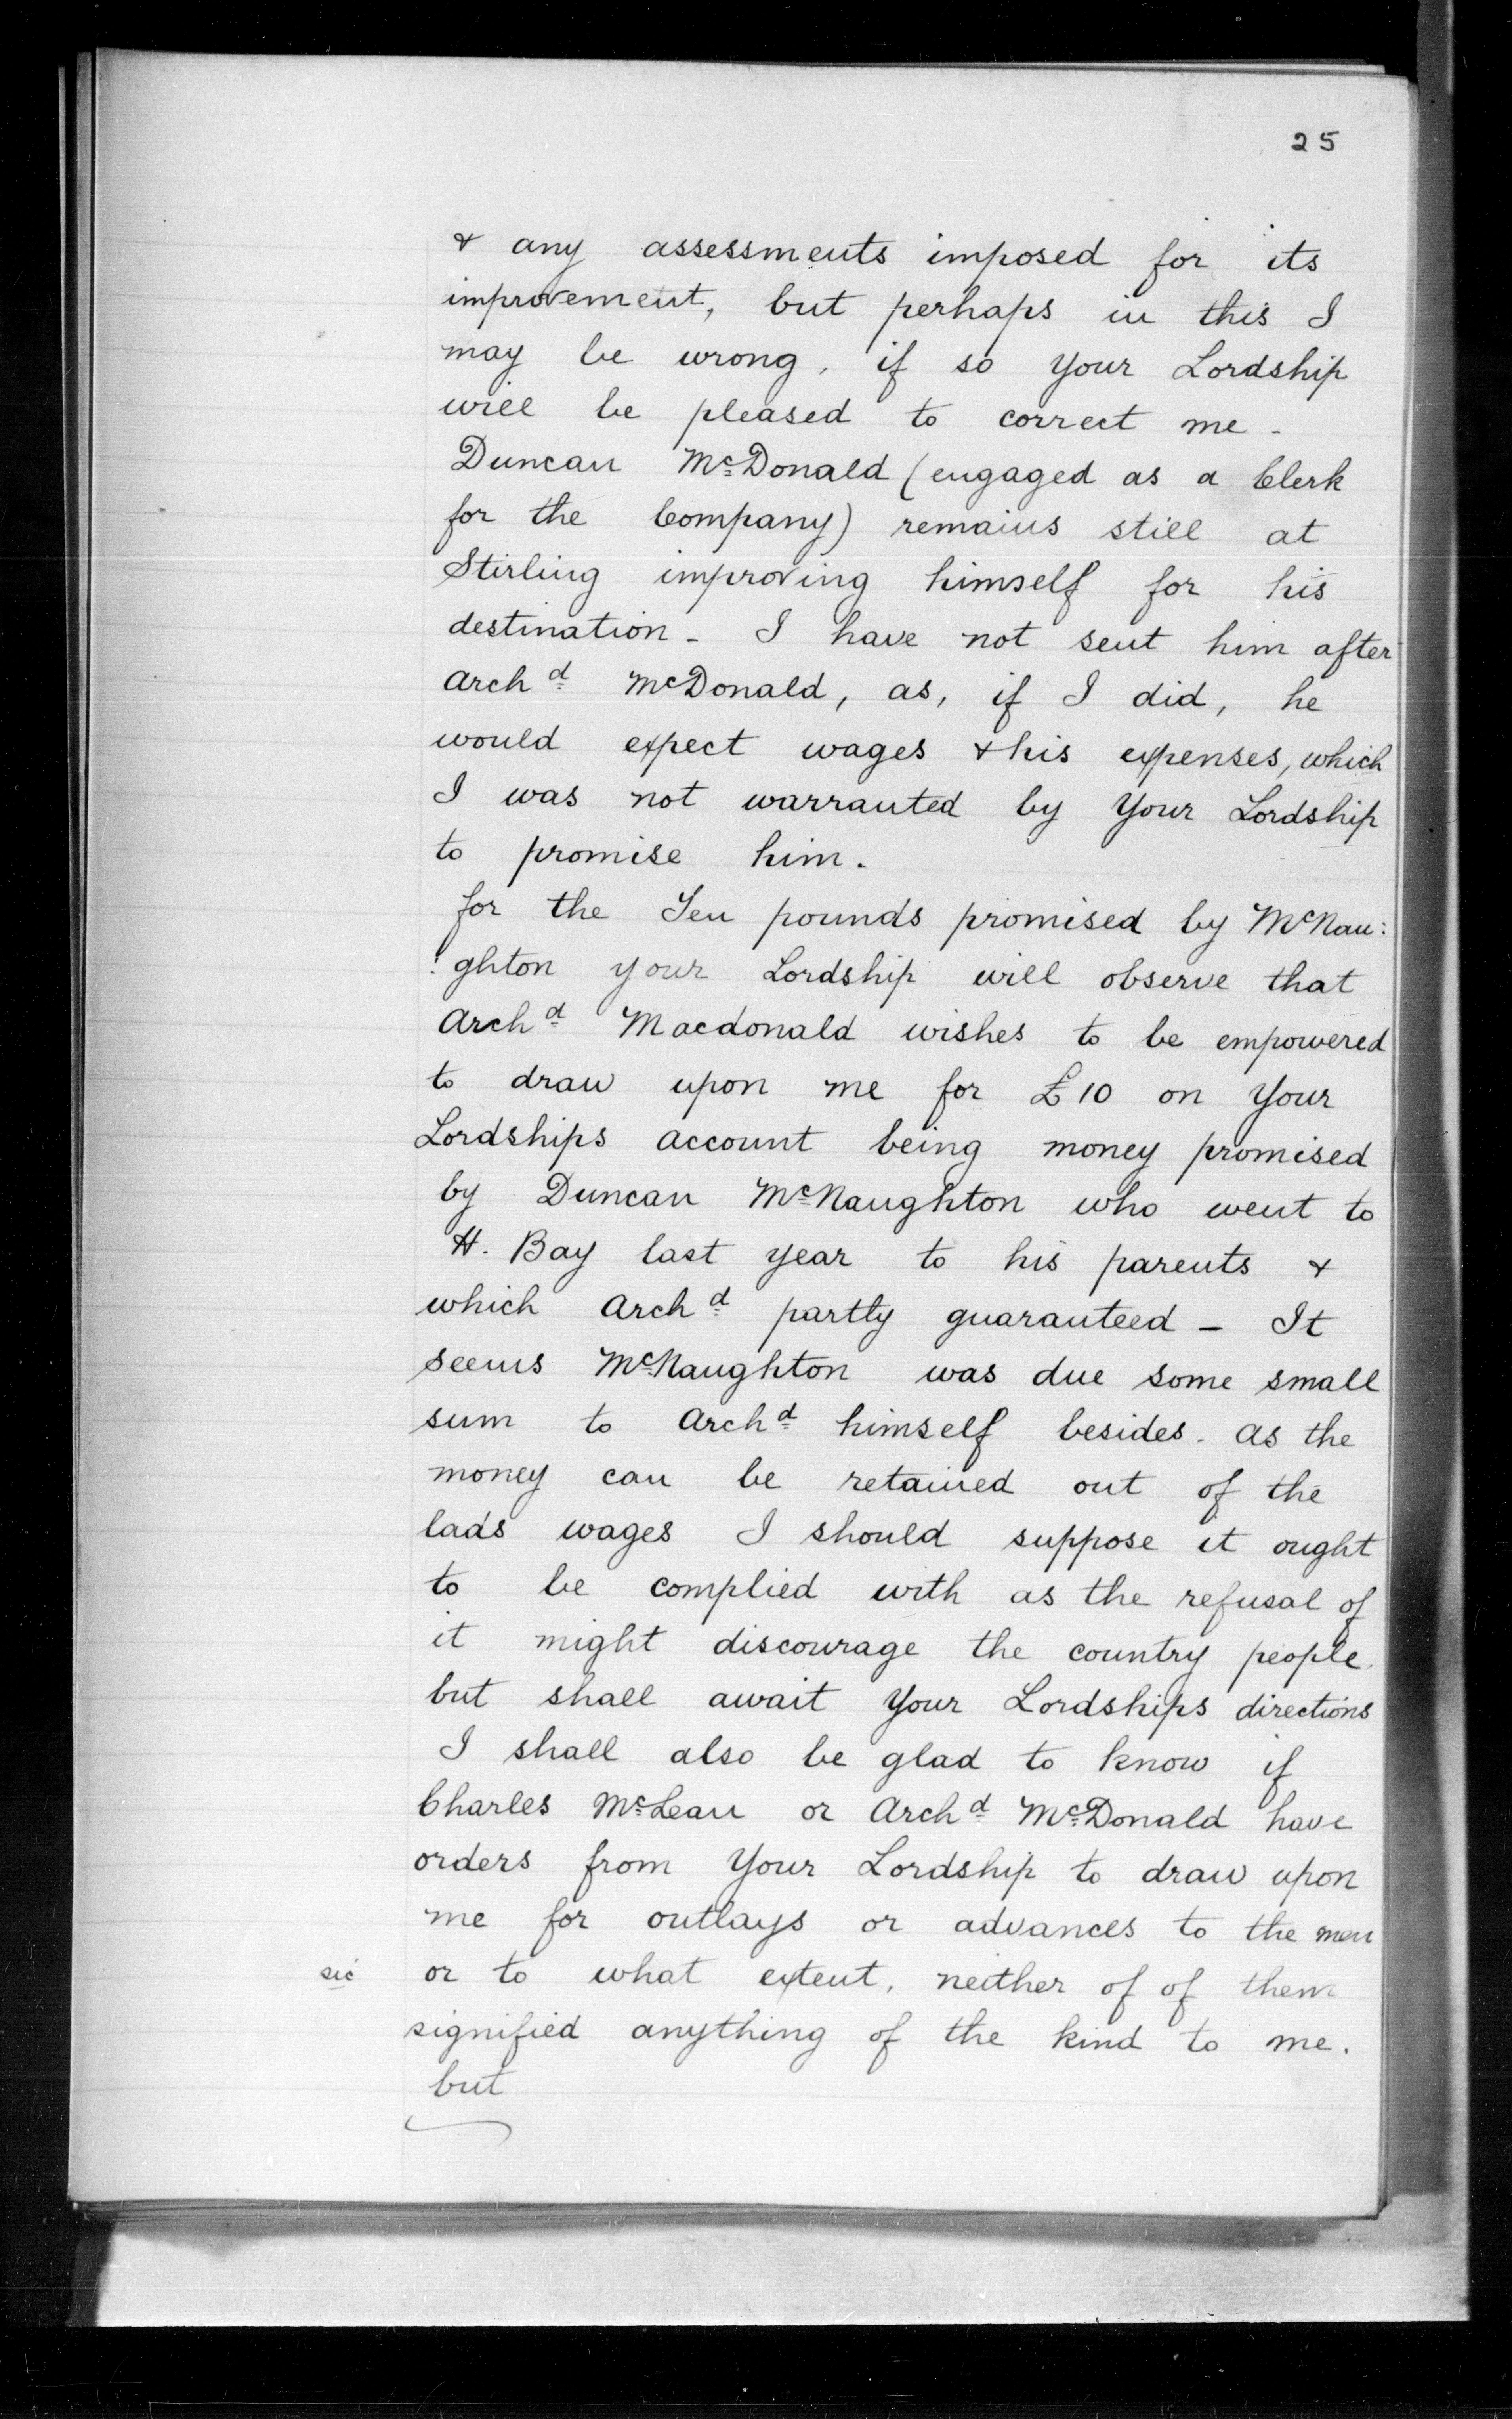 25
& any assessments imposed for its
improvement, but perhaps in this I
may be wrong, if so your Lordship
will be pleased to correct me -
Duncan McDonald (engaged as a Clerk
for the Company) remains still at
Stirling improving himself for his
destination - I have not sent him after
Archd McDonald, as, if I did, he
would expect wages & his expenses, which
I was not warranted by Your Lordship
to promise him.
for the Ten pounds promised by McNau:
:ghton your Lordship will observe that
Archd Macdonald wishes to be empowered
to draw upon me for £10 on Your
Lordships account being money promised
by Duncan McNaughton who went to
H. Bay last year to his parents &
which Archd partly guaranteed - It
seems McNaughton was due some small
sum to Archd himself besides. as the
money can be retained out of the
lads wages I should suppose it ought
to be complied with as the refusal of
it might discourage the country people.
but shall await Your Lordships directions
I shall also be glad to know if
Charles McLean or Archd McDonald have
orders from Your Lordship to draw upon
me for outlays or advances to the men
sic or to what extent, neither of of them
signified anything of the kind to me.
but